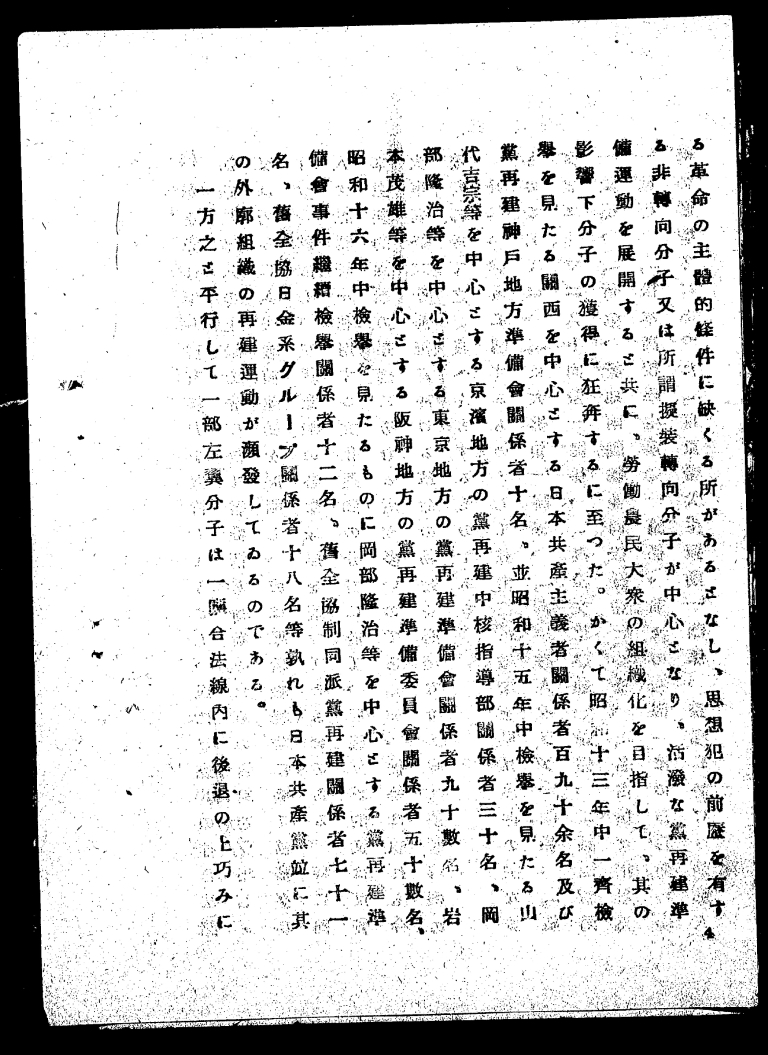 る革命の主體的條件に缺くる所があるとなし、思想犯の前歷を有す
る非轉向分子又は所謂擬裝轉向分子が中心となり、活潑な黨再建準
備運動を展開すると共に、勞働農民大衆の組織化を目指して、其の
影響下分子の獲得に狂奔するに至つた。かくて昭十三年中一齊檢
擧を見たる關西を中心とする日本共產主義者關係者百九十余名及び
黨再建神戶地方準備會關係者十名。並昭和十五年中檢擧を見たる山
代吉宗等を中心とする京濱地方の黨再建中核指導部關係者三十名、岡
部隆治等を中心とする東京地方の黨再建準備會關係者九十數名、岩
本茂雄等を中心とする阪神地方の黨再建準備委員會關係者五十數名、
昭和十六年中檢擧を見たるものに岡部隆治等を中心とする黨再建準
備會事件繼續檢擧關係者十二名、舊全協制同派黨再建關係者七十一
名、舊全協日金系グループ關係者十八名等孰れも日本共產黨竝に其
の外廓組織の再建運動が頻發してゐるのである。
一方之と平行して一部左翼分子は一應合法線內に後退の上巧みに